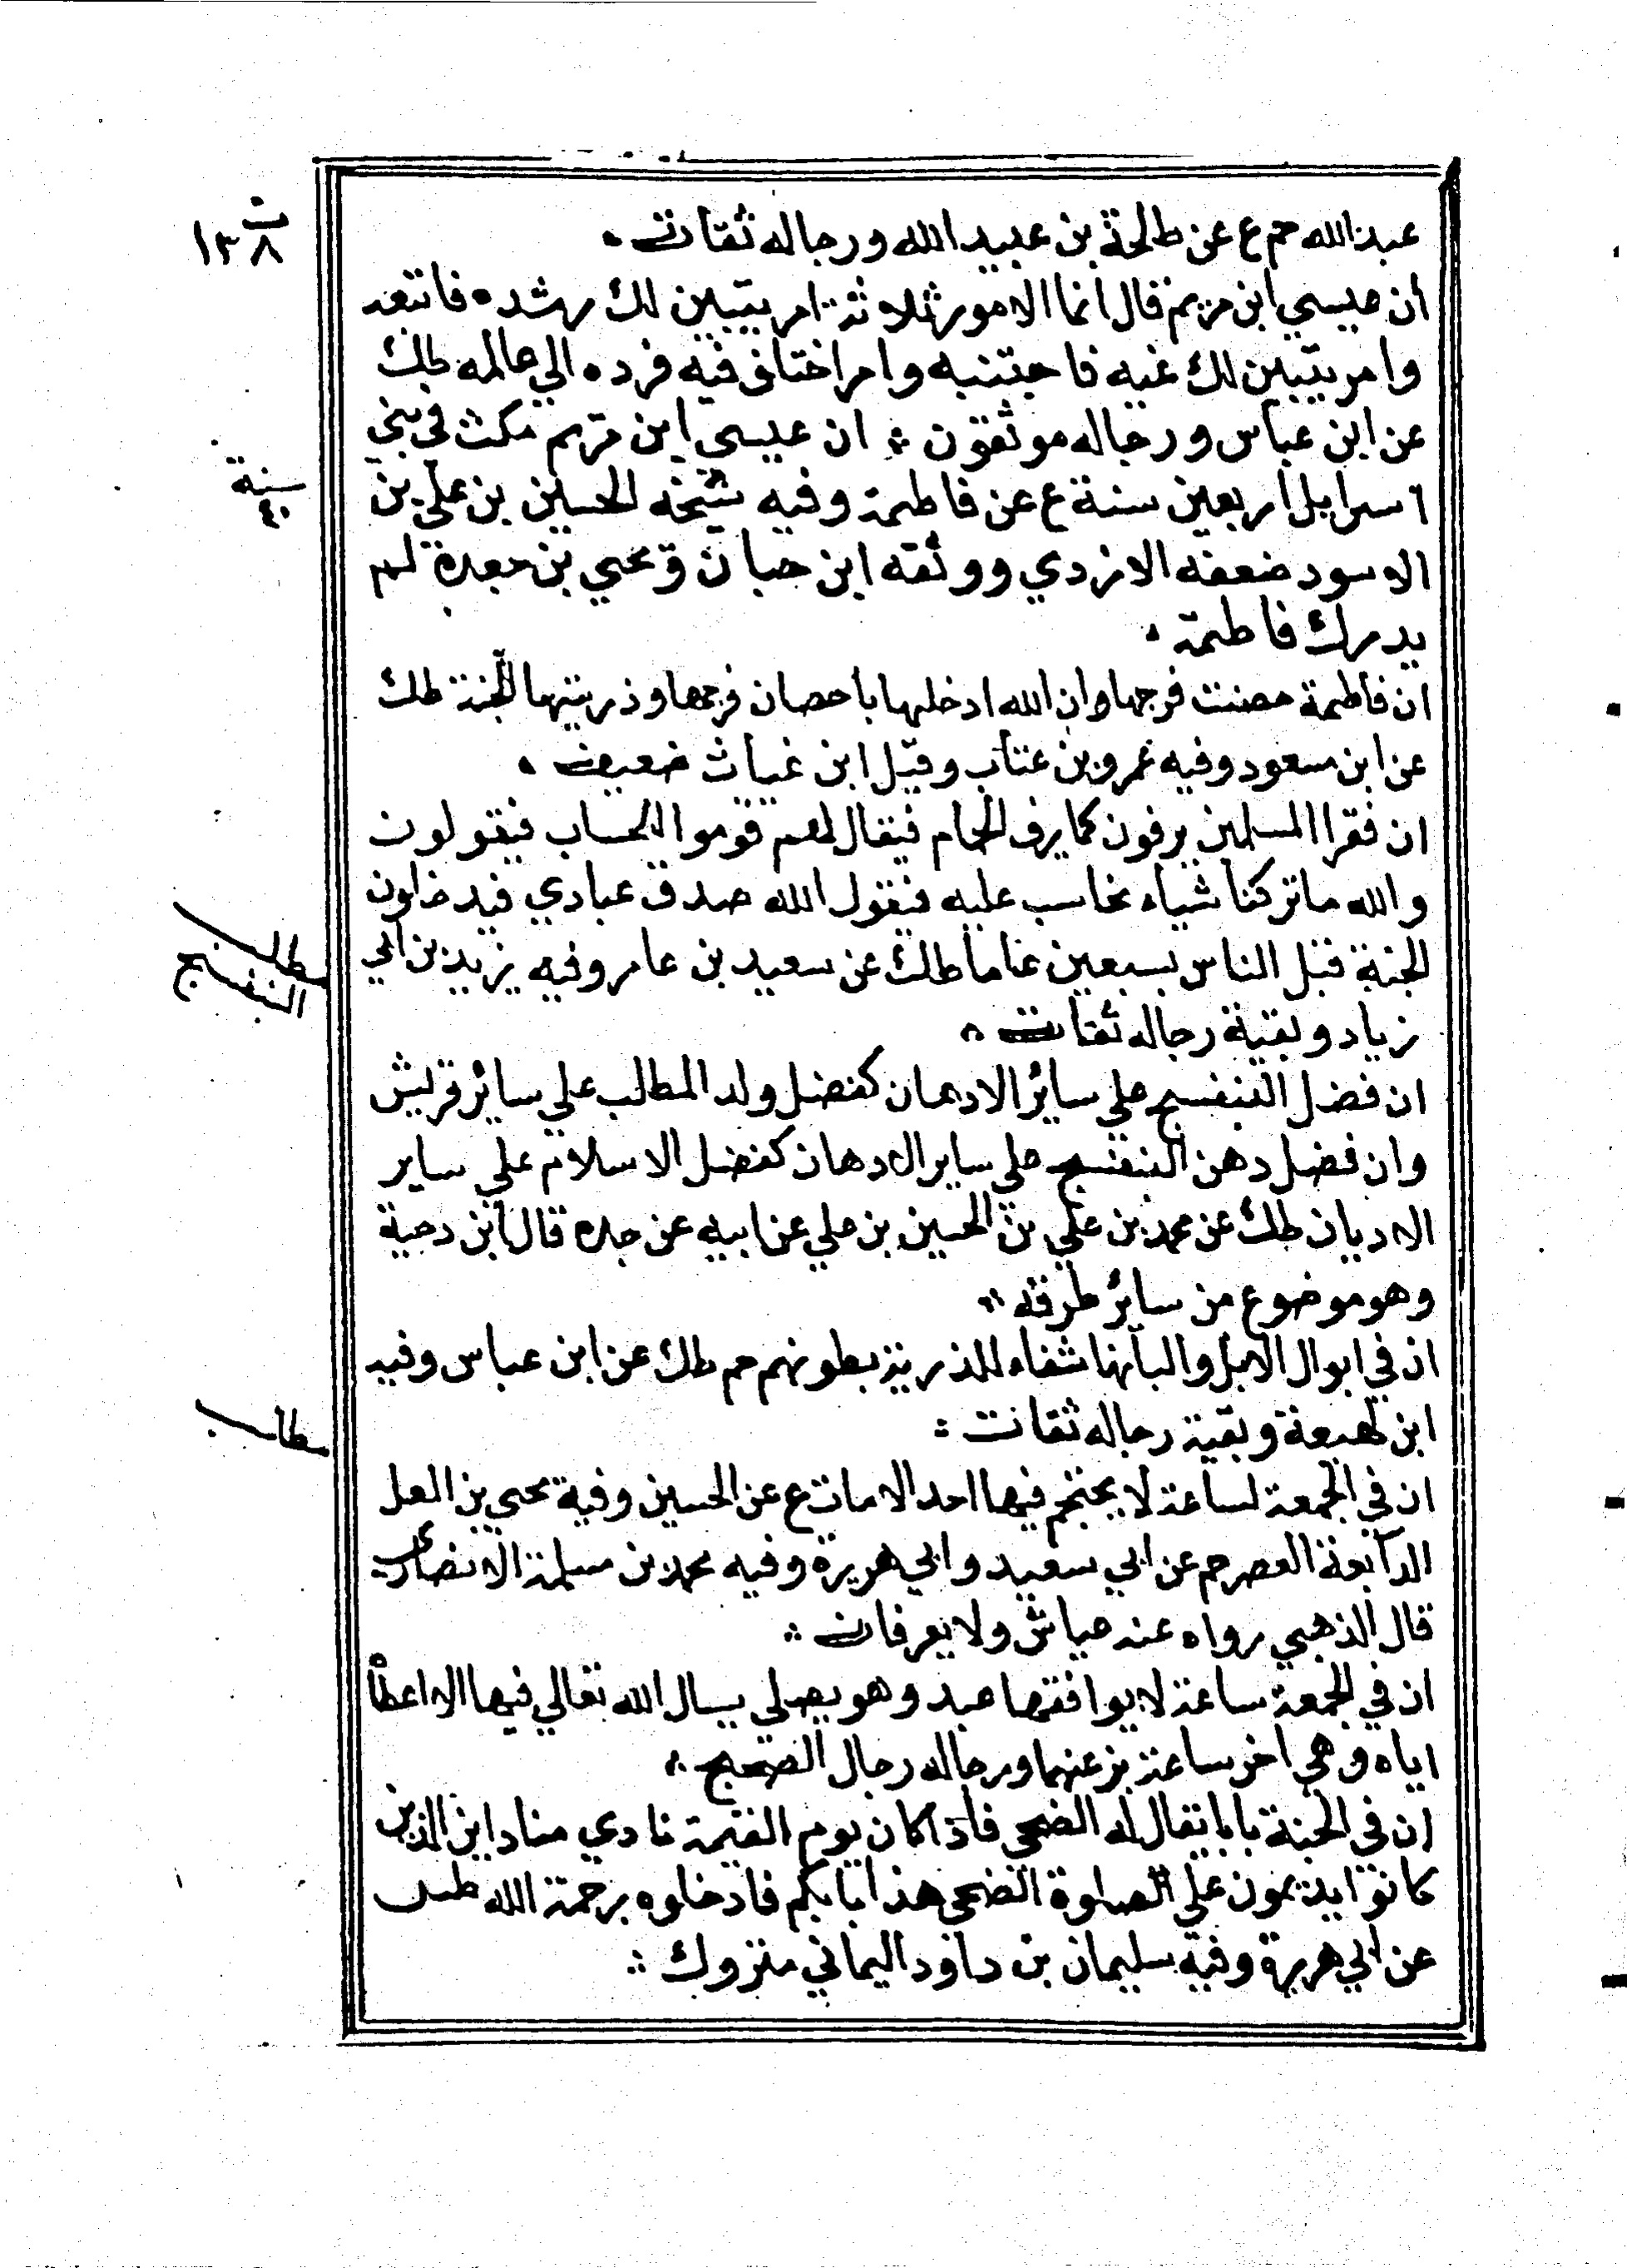 عبد الله حم ع عن طلحة بن عبيد الله ورجاله ثقات
أن عيسي ابن مريم قال انما الامور ثلاثة امر يتبين لك رشده فاتبعه
وامر يتبين لك غيه فاجتنبه وامر اختلف فيه فرده الي عالمه طك
عن ابن عباس ورجاله موثقون ان عيسي ابن مريم مكث في بني
اسرايل اربعين سنة ع عن فاطمة وفيه شيخه الحسين بن علي بن
الاسود ضعفه الازدي ووثقه ابن حبان و يحيي بن جعدة لم
يدرك فاطمة
ان فاطمة حصنت فرجها وان الله ادخلها باحصان فرجها وذريتها الجنة طك
عن ابن مسعود وفيه عمرو بن عتاب وقيل ابن غياث ضعيف
ان فقرا المسلمين يزفون كما يزف الحمام فيقال لهم قوموا للحساب فيقولون
والله ما تركنا شياء نحاسب عليه فيقول الله صدق عبادي فيدخلون
الجنة قبل الناس بسبعين عاما طك عن سعيد بن عامر وفيه يزيد بن ابي
زياد وبقية رجاله ثقات
ان فضل البنفسج علي سائر الادهان كفضل ولد المطلب علي سائر قريش
وان فضل دهن البنفسج علي ساير الادهان كفضل الاسلام علي ساير
الاديان طك عن محمد بن علي بن الحسين بن علي عن ابيه عن جده قال ابن دحية
وهو موضوع من سائر طرقه
ان في ابوال الابل والبانها شفاء للذربة بطونهم حم طك عن ابن عباس وفيه
ابن لهيعة وبقية رجاله ثقات
ان في الجمعة لساعة لا يحتجم فيها احد الا مات ع عن الحسين وفية يحيي بن العلا
العصر حم عن ابي سعيد وابي هريرة وفيه محمد بن مسلمة الانصاري
قال الذهبي رواه عنه عباس ولا يعرفان
ان في الجمعة ساعة لا يوافقها عبد وهو يصلي يسال الله تعالي فيها الا اعطاه
اياه وهي اخر ساعة بز عنهما ورجاله رجال الصحيح
ان في الجنة بابا يقال له الضحي فاذا كان يوم القيمة نادي مناد اين الذين
كانوا يديمون علي الصلوة الضحي هذا بابكم فادخلوه برحمة الله طس
عن ابي هريرة وفيه سليمان بن داود اليماني متروك
١٣٨
سنة
٤٠
مطلب
البنفسج
مطلب